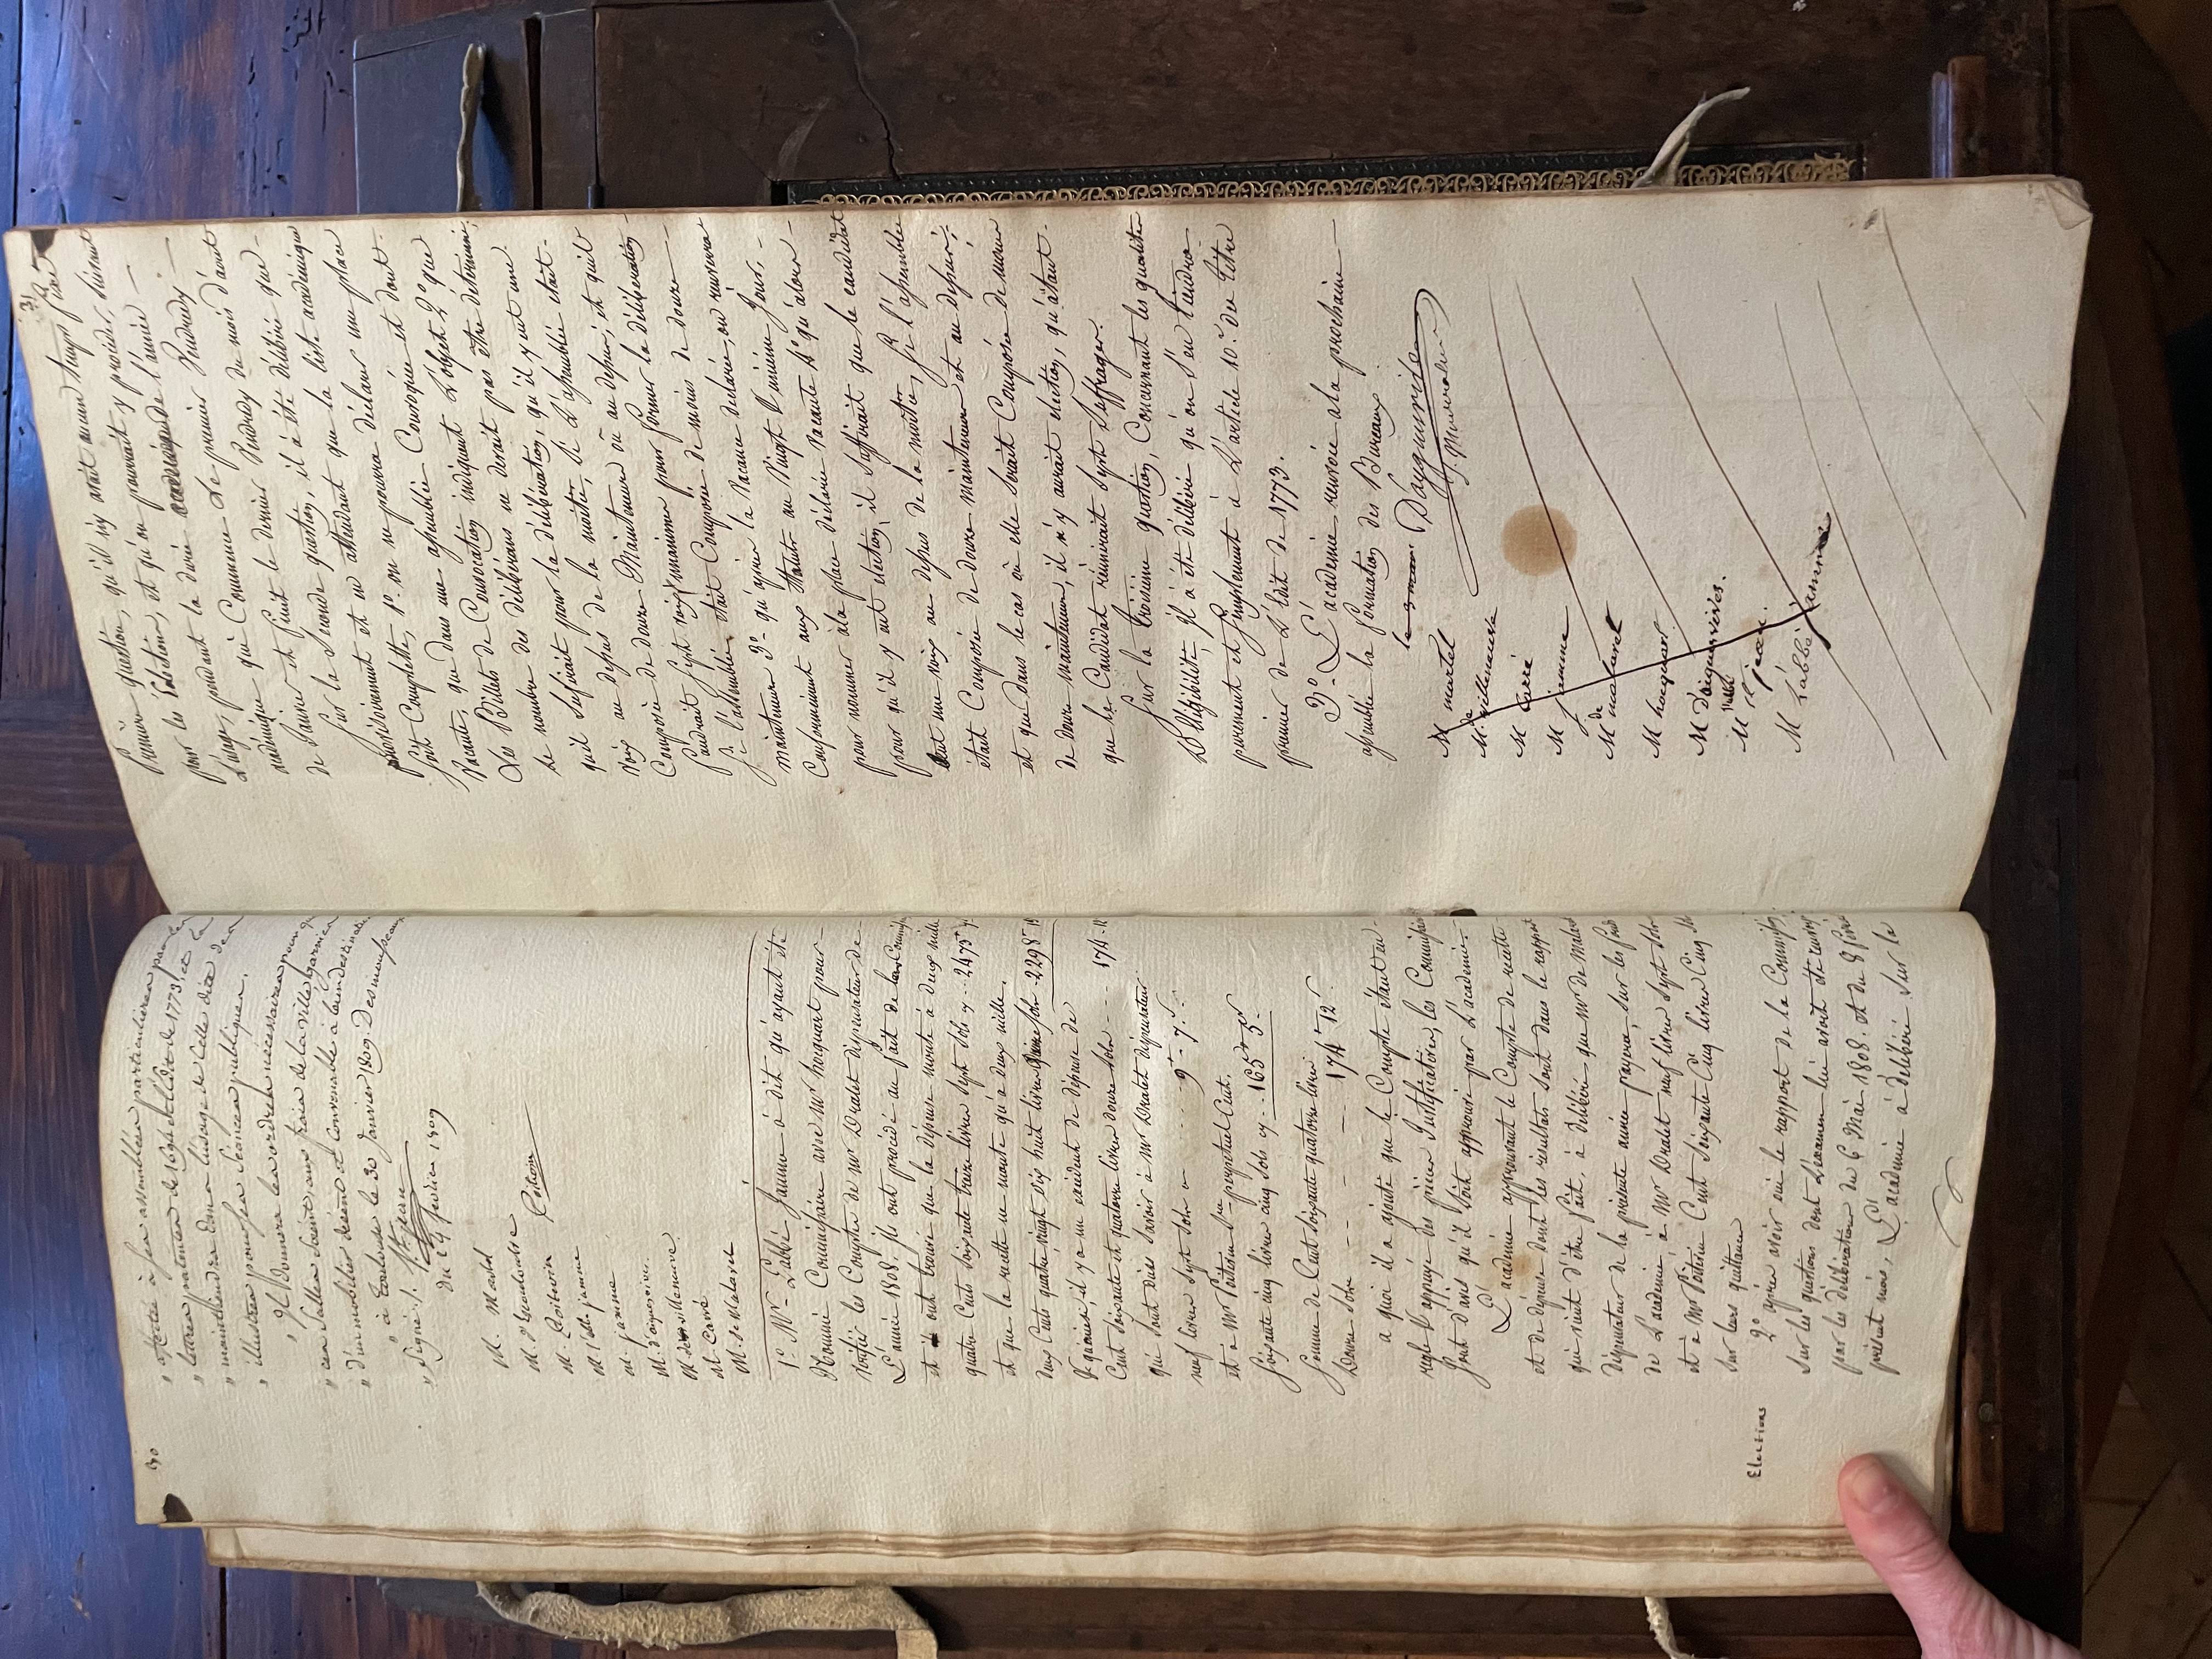 30
" affectée à ses assemblées particulieres par les
" lettres patentes de 1694 et l'édit de 1773, et la
" maintiendra dans l'usage de celle dite des
" illustres pour ses séances publiques.
" Il donnera les ordres nécessaires pour que
" ces salles soient, aux frais de la ville, garnies
" d'un mobilier décent et convenable à leur destination
" à Toulouse le 30 Janvier 1809. Desmousseaux
" signé
du 24 fevrier 1809
M. Martel
M. d'escouloubre
M. Poitevin
M. l'abbé jamme
M. jamme
M. d'aiguevives
M. de villeneuve
M. Carré
M. de Malaret
Poitevin
1.° Mr. L'abbé Jamme a dit qu'ayant été
Nommé Commissaire avec Mr hocquart pour
vérifier les Comptes de Mr Dralet dispensateur de
L'année 1808. ils ont procédé au fait de leur Commission
et ont trouvé que la dépense monte à deux mille
quatre Cents soixante treize livres sept sols cy ... 2473 " 7
et que la recette ne monte qu'à deux mille
deux Cents quatre vingt dix huit livres quinze sols 2298 " 15
Partant, il y a un excédent de dépense de
Cent soixante et quatorze livres douze sols --- 174 . 12
qui sont dues savoir à Mr Dralet dispensateur
neuf livres sept sols cy ..... 9 " 7 s.
et à Mr Poitevin Sre perpétuel Cent
soixante cinq livres cinq sols cy ... 165 " 5
Somme de Cent soixante quatorze livres
Douze sols ------ 174 " 12 s.
à quoi il a ajouté que le Compte étant en
regle & appuyé des pièces Justificatives, les Commissaires
sont d'avis qu'il soit approuvé par L'académie.
L'académie approuvant le Compte de recette
et de dépense dont les resultats sont dans le rapport
qui vient d'être fait, a délibéré que Mr de Malaret
dispensateur de la présente année payera, sur les fonds
de L'académie à Mr Dralet neuf livres sept sols
et à Mr Poitevin Cent soixante Cinq livres Cinq sols
sur leurs quittances
Elections
2.° après avoir oui le rapport de la Commission
sur les questions dont L'examen lui avoit été renvoyé
par les délibérations du 6 Mai 1808. et du 3 fevrier
présent mois, L'academie a délibéré sur la
31
Premiere question, qu'il n'y avait aucun temps fixé
pour les Elections, et qu'on pourrait y procéder, suivant
L'usage, pendant la durée academique de l'année
académique qui Commence le premier Vendredi
de Janvier et finit le dernier Vendredi du mois d'aout
Sur la seconde question, il a été délibéré que
provisoirement et en attendant que la liste académique
soit Complette, 1.° on ne pourra déclarer une place
vacante, que dans une assemblée Convoquée et dont
Les Billets de Convocation indiquent L'objet 2.° que
Le nombre des délibérans ne devait pas être déterminé,
qu'il suffisait pour la délibération, qu'il y eut une
voix au dessus de la moitié, si L'assemblée etait
Composée de douze Mainteneurs ou au dessus; et qu'il
faudrait sept voix unanimes pour former la délibération
si l'assemblée était Composée de moins de douze
mainteneurs 3.° qu'après la Vacance déclarée, on renverra
Conformement aux Statuts au Vingt unieme Jour,
pour nommer à la place déclarée vacante 4.° qu'alors
pour qu'il y eut élection, il suffirait que le candidat
eut une voix au dessus de la moitié, si l'assemblée
était Composée de douze mainteneurs et au dessus;
et que dans le cas où elle serait Composée de moins
de douze mainteneurs, il n'y aurait election, qu'autant
que le Candidat réunirait sept suffrages.
Sur la troisieme question, Concernant les qualités
d'Eligibilité, il a été délibéré qu'on s'en tiendra
purement et simplement à L'article 10.e du titre
premier de L'édit de 1773.
3.° L'académie renvoie à la prochaine
assemblée la formation des Bureaux.
Daiguesvives
M martel
M. de villeneuve
M Carré
M jamme
M de malaret
M hocquart
M D'aiguesvives.
M St jean
M L'abbé jamme